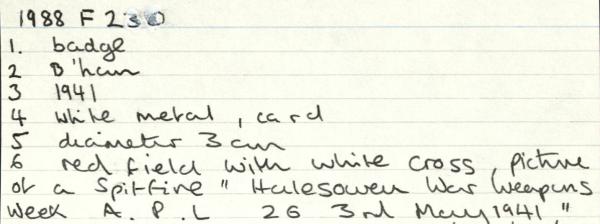 1988 F 230
1. badge
2 B'ham
3 1941
4 white metal, card
5 diameter 3cm
6 red field with white cross, picture
of a Spitfire " Halesowen War Weapons
Week A. P. L 26 3rd May 1941 "